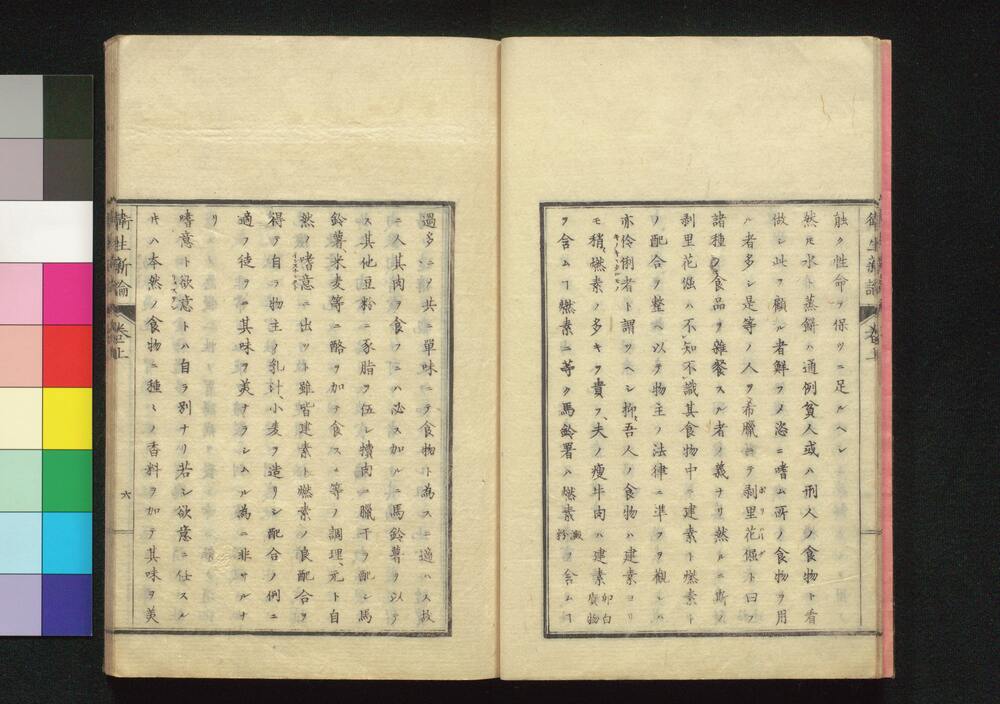 衛生新論 卷之上
能ク性命ヲ保ツニ足ルヘシ
然㆑𪜈水ト蒸餅ハ通例貧人或ハ刑人ノ食物ト看
做シ此ヲ顧ル者鮮ク メ恣ニ嗜ム所ノ食物ヲ用
ル者多シ是等ノ人ヲ希臘ニテ剥里花倔ト曰フ
ポリハーゲ
諸種ノ食品ヲ雜餐スル者ノ義ナリ然ルニ斯ノ
剥里花倔ハ不知不識其食物中ニ建素ト燃素ト
ノ配合ヲ整ヘ以テ物主ノ法律ニ準フヲ觀レハ
亦伶俐者ト謂ツヘシ抑吾人ノ食物ハ建素ヨリ
モ稍燃素ノ多キヲ貴フ夫ノ瘦牛肉ハ建素 卵白質物
ヲ含ムヿ燃素ニ等ク馬鈴薯ハ燃素 澱粉 ヲ含ムヿ
過多ニメ共ニ單味ニテ食物ト為スニ適ハス故
ニ人其肉ヲ食フニハ必ス加ルニ馬鈴薯ヲ以テ
ス其他豆粉ニ豕脂ヲ伍シ犢肉ニ臘干ヲ配シ馬
鈴薯米麦等ニ酪ヲ加テ食スル等ノ調理元ト自
然ノ嗜意ニ出ツト雖皆建素ト燃素ノ良配合ヲ
得テ自ラ物主ノ乳汁小麦ヲ造リシ配合ノ例ニ
適フ徒ラニ其味ヲ美ナラシムル為ニ非サルナ
リ
嗜意ト欲意トハ自ラ別ナリ若シ欲意ニ仕スル
𪜈ハ本然ノ食物ニ種々ノ香料ヲ加テ其味ヲ美
衛生新論 卷之上 六